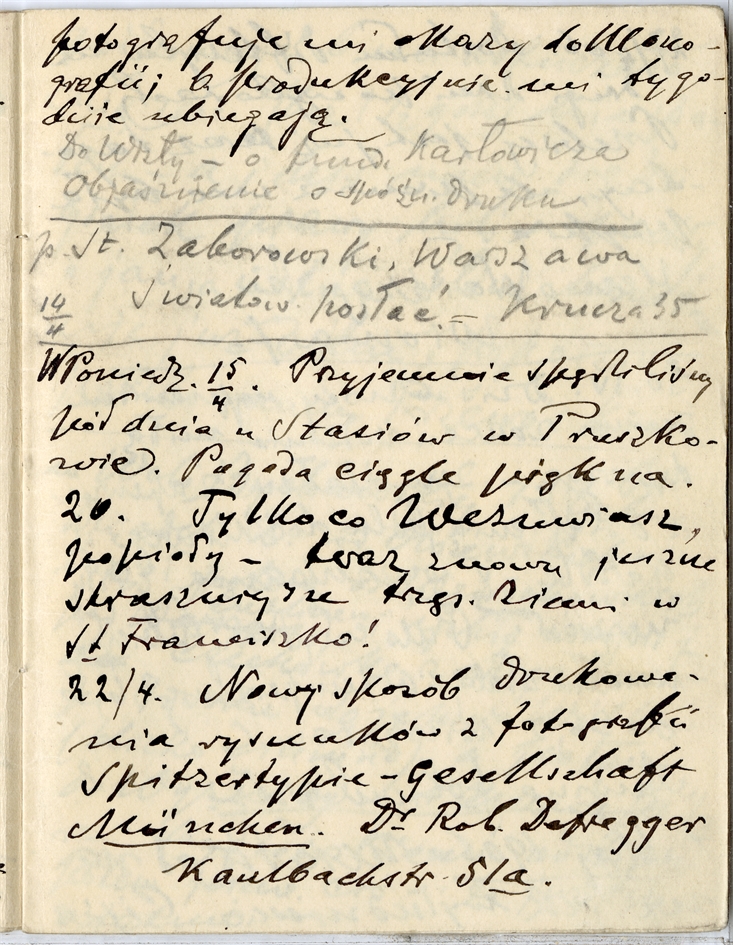 fotografuje mi okazy do Mono-
grafii; b. produkcyjnie mi tygo-
dnie ubiegają.
Do Wisły – o fund. Karłowicza
Objaśnienie o spóźn. druku
p. St. Zaborowski, Warszawa
14/4 Światow. posłać. – Krucza 35
W Poniedz. 15/4. Przyjemnie spędziliśmy
pół dnia u Stasiów w Pruszko-
wie. Pogoda ciągle piękna.
20. Tylko co Wezuwiusz,
popioły – teraz znowu jeszcze
straszniejsze trzęs. Ziemi w
St Francisko!
22/4. Nowy sposób drukowa-
nia rysunków z fotografii
Spitzertypie-Gesellschaft
München. Dr Rob. Defregger
Kaulbachstr. 51a.